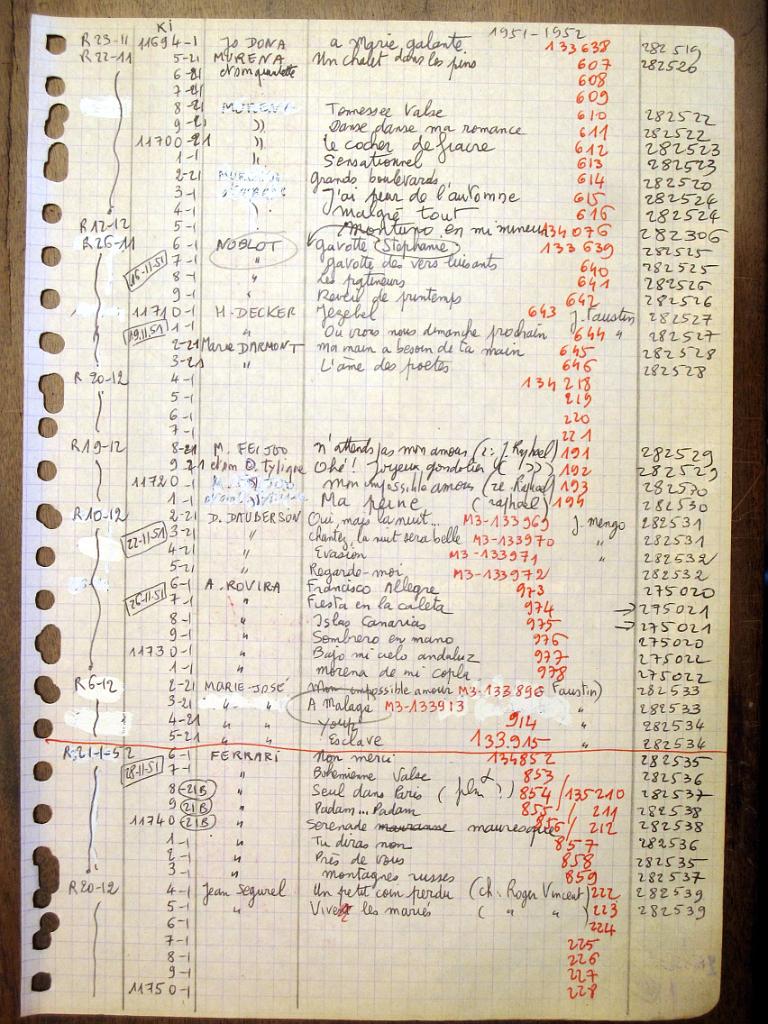 KI 1951-1952
R23-11 11694-1 Jo DONA a Marie galante 133638 282519
R22-11 5-21 MURENA Un chalet dans les pins 607 282520
6-21 608
7-21 609
8-21 MURENA Tennessee Valse 610 282522
9-21 )) Danse danse ma romance 611 282522
11700-21 )) le cocher de fiacre 612 282523
1-1 )) Sensationnel 613 282523
2-21 grands boulevards 614 282520
3-1 J'ai peur de l'automne 615 282524
4-1 Malgré tout 616 282524
R12-12 5-1 Montuno en mi mineur 134076 282306
R26-11 6-1 NOBLOT gavotte (Stephanie) 133639 282525
16-11-51 7-1 " gavotte des vers luisants 640 282525
8-1 " Les patineurs 641 282526
9-1 " Reveil de printemps 642 282526
11710-1 H. DECKER Jezebel 643 J. Faustin 282527
19.11.51 1-1 " Ou vrons nous dimanche prochain 644 " 282527
2-21 Marie DARMONT ma main a besoin de ta main 645 282528
3-21 " L'âme des poetes 646 282528
R 20-12 4-1 134218
5-1 219
6-1 220
7-1 221
R19-12 8-21 M. FEIJOO n'attends pas mon amour (r: J. Raphael) 191 282529
9-21 O. Tylique Ohé! Joyeux gondolier ( " ) 192 282529
11720-1 mon impossible amour (re Raphael) 193 282530
1-1 Ma peine (raphael) 194 282530
R10-12 2-21 D. DAUBERSON Oui, mais la nuit... M3-133969 J. mengo 282531
3-21 " chantez, la nuit sera belle M3-133970 " 282531
22-11-51 4-21 " Evasion M3-133971 " 282532
5-21 " Regarde-moi M3-133972 282532
6-1 A. ROVIRA Francisco Allegre 973 275020
26-11-51 7-1 " Fiesta en la caleta 974 → 275021
8-1 " Islas Canarias 975 → 275021
9-1 " Sombrero en mano 976 275020
11730-1 " Bajo mi cielo andaluz 977 275022
1-1 " morena de mi copla 978 275022
R6-12 2-21 MARIE-JOSÉ Mon impossible amour M3-133.896 Faustin) 282533
3-21 " " A Malaga M3-133913 " 282533
4-21 " " Youp! 914 " 282534
5-21 " " Esclave 133.915 " 282534
R.21-1-52 6-1 FERRARI Non merci 134852 282535
28-11-51 7-1 " Bohemienne Valse 853 282536
8 (21B) " Seul dans Paris ( plus ? ) 854/135210 282537
9 (21B) " Padam... Padam 855/ 211 282538
11740 (21B) " Serenade mauresque 856/ 212 282538
1-1 " Tu diras non 857 282536
2-1 " Près de vous 858 282535
3-1 " montagnes russes 859 282537
R20-12 4-1 Jean Segurel Un petit coin perdu (ch. Roger Vincent) 222 282539
5-1 " Vive les mariés ( " " ) 223 282539
6-1 224
7-1 225
8-1 226
9-1 227
11750-1 228